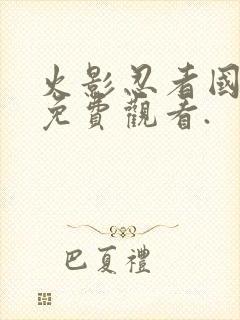 火影忍者國
免費觀看.
巴夏禮